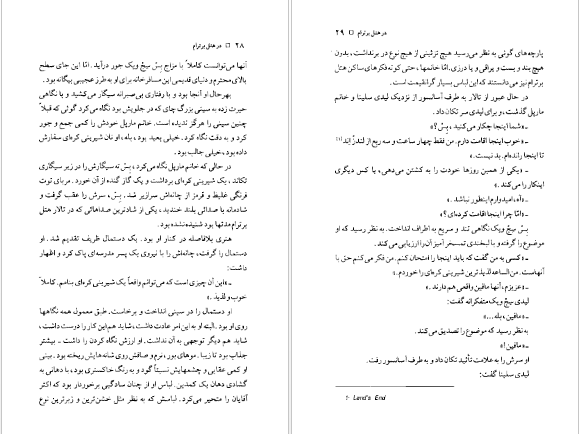 ۲۸ □ در هتل برترام
آنها می‌توانست کاملاً با مزاج بِسْ سِج ویک جور درآید. امّا این جای سطح
بالای محترم و دنیای قدیمی این مسافرخانه برای او به طرز عجیبی بیگانه بود.
بهرحال او آنجا بود و با رفتاری بی‌صبرانه سیگار می‌کشید و با نگاهی
حیرت زده به سینی بزرگ چای که در جلویش بود نگاه می‌کرد گوئی که قبلاً
چنین سینی را هرگز ندیده است. خانم مارپل خودش را کمی جمع و جور
کرد و به دقت نگاه کرد. خیلی بعید بود، بله، او نان شیرینی کره‌ای سفارش
داده بود، خیلی جالب بود.
در حالی که خانم مارپل نگاه می‌کرد، بِسْ ته سیگارش را در زیر سیگاری
تکاند، یک شیرینی کره‌ای برداشت و یک گاز گنده از آن خورد. مربای توت
فرنگی غلیظ و قرمز از چانه‌اش سرازیر شد. بِسْ، سرش را عقب گرفت و
شادمانه با صدائی بلند خندید، یکی از شادترین صداهائی که در تالار هتل
برترام مدتها بود شنیده نشده بود.
هنری بلافاصله در کنار او بود. یک دستمال ظریف تقدیم شد. او
دستمال را گرفت، چانه‌اش را با نیروی یک پسر مدرسه‌ای پاک کرد و اظهار
داشت:
ـ «این آن چیزی است که می‌توانم واقعاً یک شیرینی کره‌ای بنامم. کاملاً
خوب و لذیذ.»
او دستمال را در سینی انداخت و برخاست. طبق معمول همه نگاهها
روی او بود. البته او به این امر عادت داشت، شاید هم این کار را دوست داشت،
شاید هم دیگر توجهی به آن نداشت. او ارزش نگاه کردن را داشت ـ بیشتر
جذاب بود تا زیبا. موهای بور، نرم و صافش روی شانه‌هایش ریخته بود. بینی
کمی عقابی و چشمهایش نسبتاً گود و به رنگ خاکستری بود، با دهانی به
گشادی دهان یک کمدین. لباس او از چنان سادگیی برخوردار بود که اکثر
آقایان را متحیر می‌کرد. لباسش که به نظر مثل خشن‌ترین و زبرترین نوع
در هتل برترام □ ۲۹
پارچه‌های گونی به نظر می‌رسید هیچ تزئینی از هیچ نوع در برنداشت، بدون
هیچ بند و بست و یراقی و یا درزی. امّا خانمها، حتی کوته فکرهای ساکن هتل
برترام نیز می‌دانستند که این لباس بسیار گرانقیمت است.
در حال عبور از تالار به طرف آسانسور از نزدیک لیدی سلینا و خانم
مارپل گذشت، و برای لیدی سر تکان داد.
ـ «شما اینجا چکار می‌کنید، بِسْ؟»
ـ «خوب اینجا اقامت دارم. من فقط چهار ساعت و سه ربع از لندزْ اِند[۱]
تا اینجا رانده‌ام. بد نیست.»
ـ «یکی از همین روزها خودت را به کشتن می‌دهی، یا کس دیگری
اینکار را می‌کند.»
ـ «آه، امیدوارم اینطور نباشد.»
ـ «امّا چرا اینجا اقامت کرده‌ای؟»
بِسْ سِج ویک نگاهی تند و سریع به اطراف انداخت. به نظر رسید که او
موضوع را گرفته و با لبخندی تمسخرآمیز آن را ارزیابی می‌کند.
ـ «کسی به من گفت که باید اینجا را امتحان کنم. من فکر می‌کنم حق با
آنهاست. من الساعه لذیذترین شیرینی کره‌ای را خوردم.»
ـ «عزیزم، آنها مافین واقعی هم دارند.»
لیدی سِج ویک متفکرانه گفت:
ـ «مافین، بله...»
به نظر رسید که موضوع را تصدیق می‌کند.
ـ «مافین!»
او سرش را به علامت تأئید تکان داد و به طرف آسانسور رفت.
لیدی سلینا گفت:
Land's End